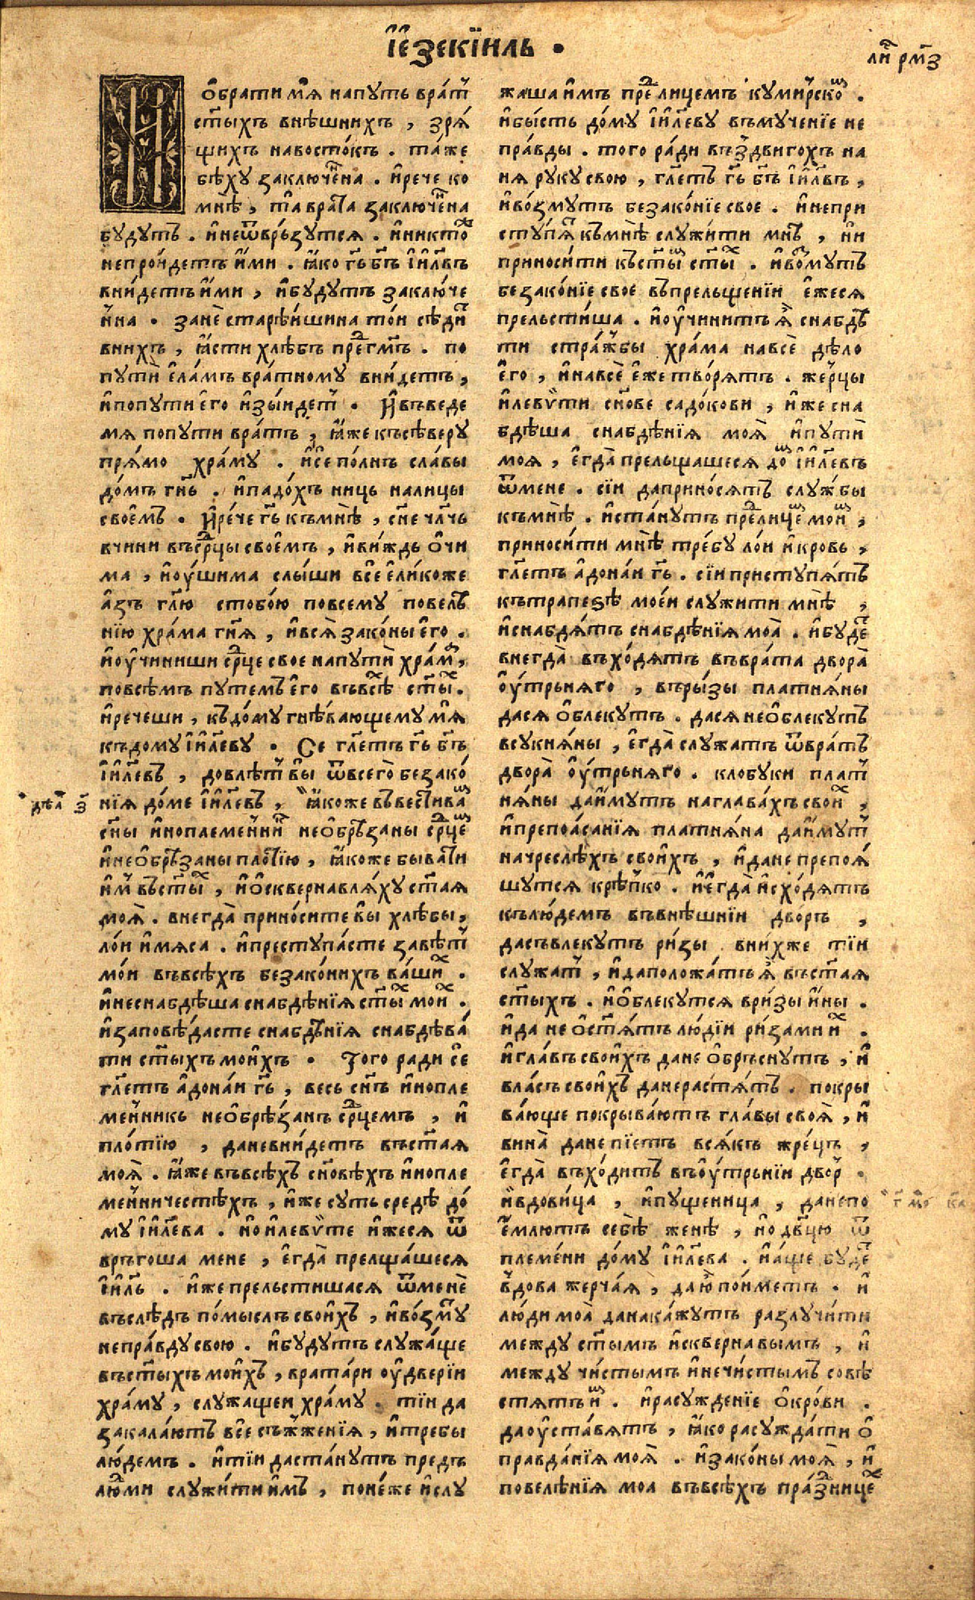 І҆е҆зекїиль •
ли́ рм҃з
И
ѻ҆брати мѧ̀ напуть вра́т
ст҃ыхъ внѣшнихъ , зрѧ́
щихъ навосто́къ . та́же
бѣ́ху заключе́на . и҆рече ко
мнѣ̀ , та̀ врата̀ заключе́на
бу́дутъ . и҆неѿвръ́зутсѧ . и҆никто́
непро́йдетъ и҆́ми . ꙗ҆́ко гь҃ бъ҃ і҆и҃левъ
вни́детъ и҆́ми , и҆бу́дутъ заключе́
нна . занѐ старѣ́ишина то́и сѣ́ди
вни́хъ , ꙗ҆́сти хлѣ́бъ пре́гмъ . по
путѝ є҆ла́мъ вра́тному вни́детъ ,
и҆попути є҆го̀ и҆зы́идет . И҆въведе
мѧ попути вра́тъ , ꙗ҆́же къ сѣ́веру
прѧ́мо хра́му . и҆сѐ по́лнъ сла́вы
до́мъ гн҃ь . и҆падо́хъ ниць налицы
свое́мъ . И҆рече гь҃ къмнѣ̀ , сн҃е чл҃чь
вчини въср҃цы свое́мъ , и҆ви́ждь ѻ҆чи
ма , и҆ѹ҆шима слы́ши всѐ є҆ли́коже
а҆́зъ гл҃ю стобо́ю повсему повелѣ
нїю хра́ма гн҃ѧ , и҆всѧ̀ зако́ны є҆го̀ .
и҆ѹ҆чиниши ср҃це свое напутѝ хра́м ,
повсѣ́мъ путе́мъ є҆го̀ въвсѣ́ ст҃ы .
и҆рече́ши , къдо́му гнѣ́вающему мѧ̀
къдому і҆и҃леву . Се гл҃етъ гь҃ бъ҃
і҆и҃левъ , довлѣ́т вы̀ ѿвсего̀ безако́
нїѧ до́ме і҆и҃левъ , ꙗ҆́коже въвести ва́
сн҃ы и҆ноплеме́нни необрѣ́заны ср҃це
и҆неѻ҆брѣ́заны пло́тїю , ꙗ҆́коже быва́ти
и҆́м въст҃ы , и҆ѻ҆сквернавлѧ́ху ст҃аѧ
моѧ̀ . внегда̀ прино́сите вы̀ хлѣ́бы ,
ло́и и҆мѧса . и҆преступа́сте завѣ́т
мо́и въвсѣ́хъ безако́нихъ ва́ши .
и҆неснабдѣ́ша снабдѣ́нїѧ ст҃ы мои .
и҆заповѣ́дасте снабдѣ́нїѧ снабдѣва́
ти ст҃ыхъ мои́хъ . Того ради сѐ
гл҃етъ а҆дона́и гь҃ , весь сн҃ъ и҆нопле
ме́нникь неѻ҆брѣ́занъ ср҃цемъ , и҆
пло́тїю , даневни́детъ въст҃аѧ
моѧ̀ . ꙗ҆́же въвсѣ́хъ сн҃овѣхъ и҆нопле
ме́нничестѣхъ , и҆же суть средѣ̀ до́
му і҆и҃лева . но и҆левѵ́те и҆жесѧ ѿ
връго́ша мене , є҆гда̀ прелща́шесѧ
і҆и҃ль . и҆же прельсти́шасѧ ѿменѐ
въслѣ́дъ по́мыслъ свои́хъ , и҆во́змꙋ
непра́вду свою . и҆бу́дутъ служа́ще
въст҃ыхъ мои́хъ , врата́ри ѹ҆двере́и
хра́му , служа́щеи хра́му . тїи да
закала́ютъ всѐ съжже́нїѧ , и҆требы
лю́демъ . и҆тїи даста́нутъ предъ
людми служи́ти и҆́мъ , поне́же и҆слу
жаша и҆́мъ пре́ лице́мъ кумирско .
и҆бысть до́му і҆и҃леву въмуче́нїе не
пра́вды . того ра́ди въздвиго́хъ на
нѧ руку свою , гл҃етъ гь҃ бъ҃ і҆и҃левъ ,
и҆во́змутъ безако́нїе свое . и҆непри
сту́пѧ къмнѣ̀ служи́ти мнѣ , ни
приноси́ти къст҃ы ст҃ы . и҆во́змутъ
безако́нїе свое въпрельще́нїи є҆жесѧ
прельсти́ша . и҆ѹ҆чинитъ ѧ҆̀ снабдѣ
ти стра́жбы хра́ма навсѐ дѣ́ло
є҆го̀ , и҆навсѐ є҆же тво́рѧтъ . жерцы
и҆левѵти сн҃ове садо́кови , и҆же сна
бдѣ́ша снабдѣ́нїѧ моѧ̀ и҆путѝ
моѧ , є҆гда̀ прельща́шесѧ до і҆и҃левъ
ѿмене . сїи даприно́сѧтъ службы
къмнѣ̀ . и҆ста́нутъ пре́лице мои ,
приноси́ти мнѣ̀ тре́бу ло́и и҆кровь ,
гл҃етъ а҆дона́и гь҃ . сїи присту́пѧтъ
къ трапе́ѕѣ мое́и служи́ти мнѣ̀ ,
и҆снабдѧ́тъ снабдѣ́нїѧ моѧ̀ . и҆бу́де
внегда̀ въхо́дѧтъ въврата̀ двора̀
ѹ҆трьнѧ́го , въри́зы платнѧ́ны
дасѧ ѻ҆блекутъ . дасѧ неѻ҆блекутъ
всукнѧ́ны , є҆гда̀ слу́жатъ ѿвратъ
двора̀ ѹ҆трьнѧ́го . клобуки плат
нѧны да и҆мутъ наглава́хъ свои ,
и҆препоѧ́санїѧ платнѧ́на да и҆мут
начреслѣ́хъ свои́хъ , и҆дане препоѧ́
шутсѧ крѣ́пко . и҆є҆гда̀ и҆схо́дѧтъ
къ лю́демъ въвнѣ́шнїи дворъ ,
дасъвлекутъ ри́зы вни́хже тїи
служат , и҆даположа́тъ ѧ҆̀ въст҃аѧ
ст҃ыхъ . и҆ѻ҆блекутсѧ вризы и҆́ны .
и҆да не ѻ҆стѧ́тъ лю́дїи ри́зами и .
и҆ гла́въ свои́хъ дане ѻ҆брѣ́снутъ , и҆
вла́съ свои́хъ данераста́тъ . покры
ва́юще покрыва́ютъ гла́вы своѧ̀ , и҆
вина̀ дане пїетъ всѧ́къ жре́цъ ,
є҆гда̀ въхо́дитъ въѹ҆трьнїи дво́р .
и҆вдови́ца , и҆пуще́ница , данепо
є҆млютъ себѣ̀ женѣ̀ , но дв҃цю ѿ
племе́ни до́му і҆и҃лева . и҆а҆ще буде
вдова жерча́ѧ , даю пои́метъ . и҆
лю́ди моѧ̀ данака́жутъ разлучи́ти
между ст҃ымъ и҆сквернавымъ , и҆
между чи́стымъ и҆нечи́стымъ совѣ
стѧтъ и҆ . и҆расужде́нїе ѻ҆кро́ви .
даѹ҆ста́вѧтъ , ꙗ҆́ко расужда́ти ѻ҆
правда́нїѧ моѧ̀ . и҆зако́ны моѧ̀ , и҆
повелѣ́нїѧ моа въвсѣ́хъ пра́знице